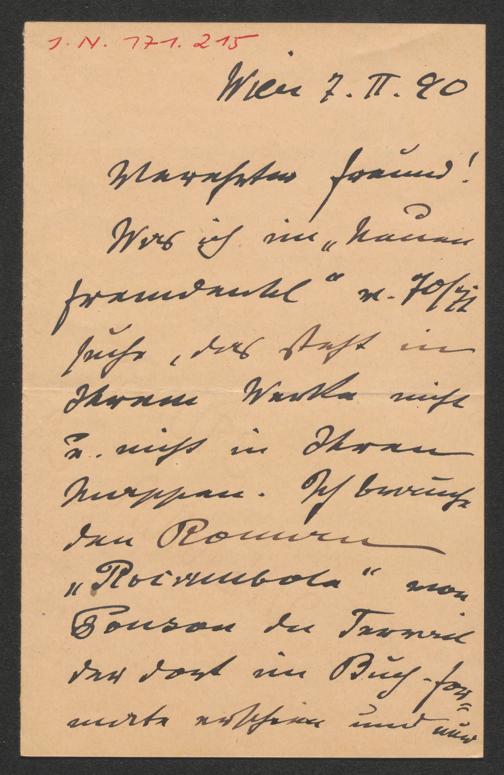 I. N. 171.215
Wien 7. II. 90
Verehrter Freund!
Was ich im „Neuen
Fremdenbl“ v. 70/71
suche, das steht in
Ihrem Werke nicht
u. nicht in Ihren
Mappen. Ich brauche
den Roman
„Rocambole“ von
Ponson du Terrail
der dort im Buch-for=
mate erschien und nur